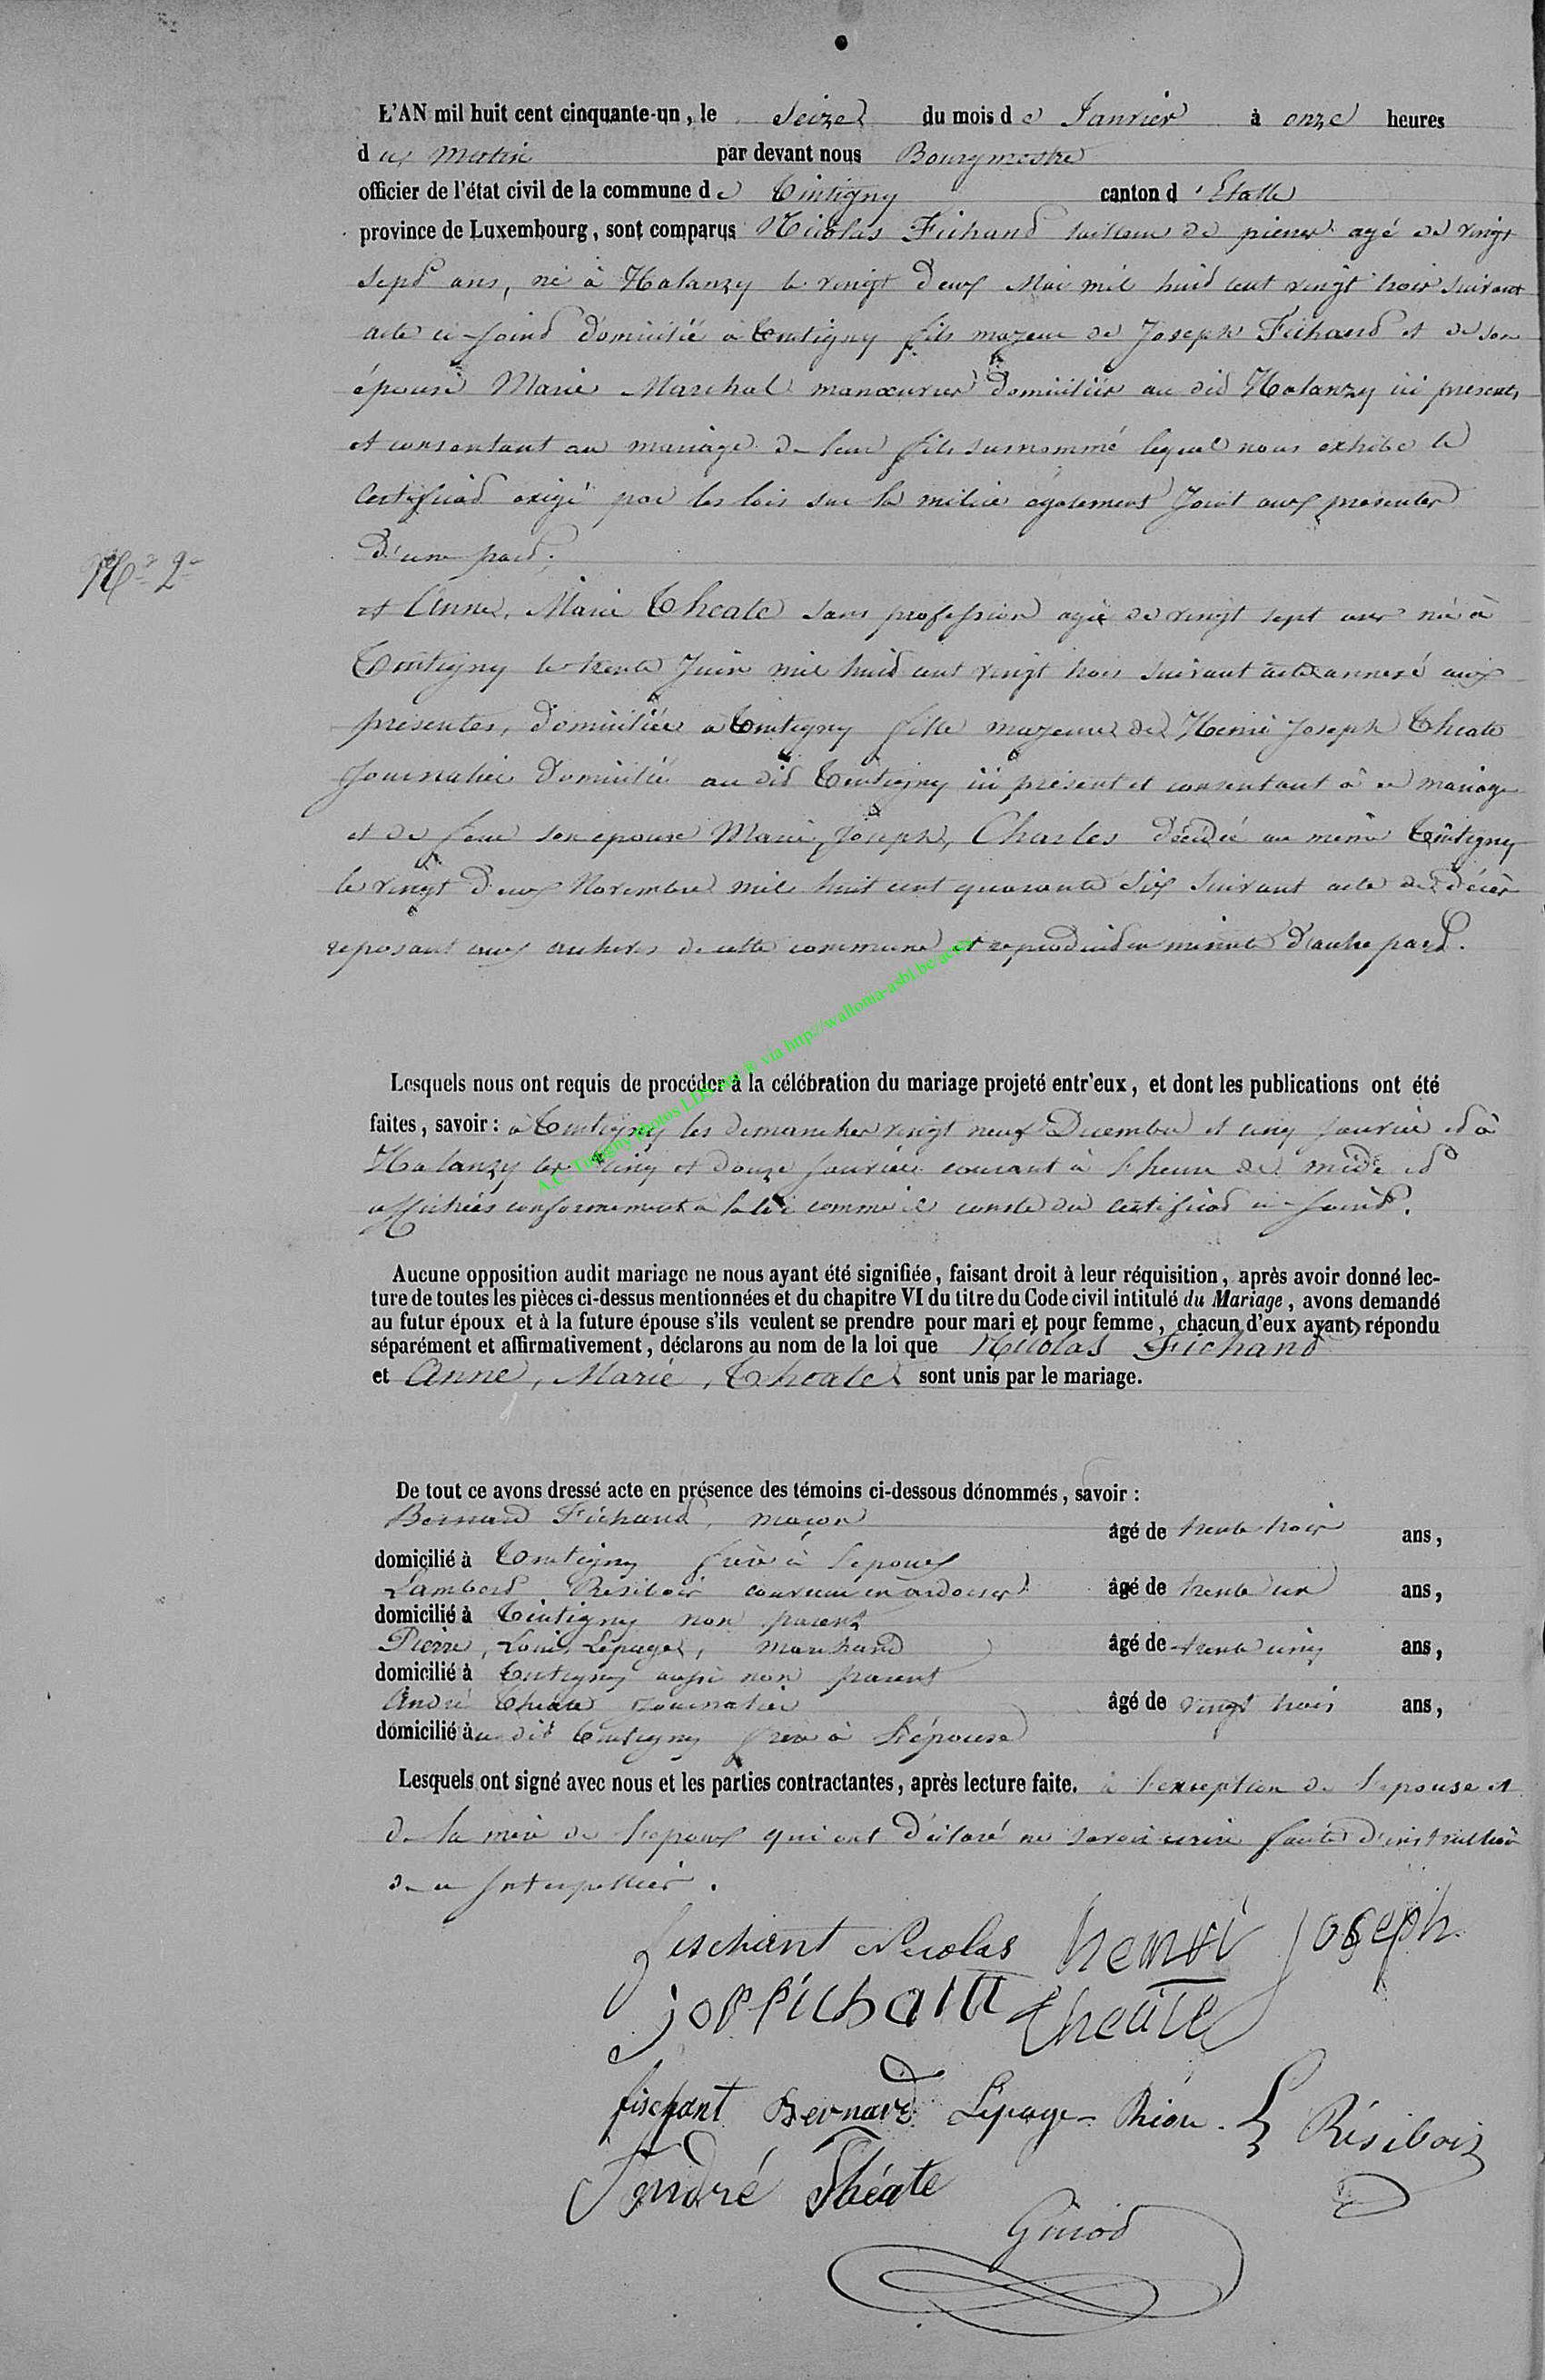 L'AN mil huit cent cinquante-un, le Seize du mois de Janvier à onze heures
du Matin par devant nous Bourgmestre
officier de l'état civil de la commune de Tintigny canton d'Etalle
province de Luxembourg, sont comparus Nicolas Fichand tailleur de pierres agé de vingt
sept ans, né à Halanzy le vingt deux Mai mil huit cent vingt trois suivant
acte ci-joint domicilié à Tintigny fils majeur de Joseph Fichand et de son
épouse Marie Marechal manœuvrier domiciliés au dit Halanzy ici présents
et consentant au mariage de leur fils surnommé lequel nous exhibe le
Certificat exigé par les lois sur la milice également Joint aux présentes
d'une part;
N° 2
et Anne, Marie Theate sans profession agée de vingt sept ans née à
Tintigny le trente Juin mil huit cent vingt trois suivant acte annexé aux
présentes, domiciliée à Tintigny fille majeure de Henri Joseph Theate
Journalier domicilié au dit Tintigny ici présent et consentant à ce mariage
et de feue son epouse Marie, Joseph, Charles décédée au même Tintigny
le vingt deux Novembre mil huit cent quarante six suivant acte de décès
reposant aux archives de cette commune et reproduit en minute d'autre part.
A.C. Tintigny photos LDS via http://wallonia-asbl.be/actes
Lesquels nous ont requis de procéder à la célébration du mariage projeté entr'eux, et dont les publications ont été
faites, savoir: à Tintigny les dimanches vingt neuf Decembre et cinq Janvier et à
Halanzy les cinq et douze Janvier courant à l'heure de midi et
affichées conformément à la loi comme il conste du certificat ci-joint.
Aucune opposition audit mariage ne nous ayant été signifiée, faisant droit à leur réquisition, après avoir donné lec-
ture de toutes les pièces ci-dessus mentionnées et du chapitre VI du titre du Code civil intitulé du Mariage, avons demandé
au futur époux et à la future épouse s'ils veulent se prendre pour mari et pour femme, chacun d'eux ayant répondu
séparément et affirmativement, déclarons au nom de la loi que Nicolas Fichand
et Anne, Marie, Theate sont unis par le mariage.
De tout ce avons dressé acte en présence des témoins ci-dessous dénommés, savoir:
Bernard Fichand, maçon âgé de trente trois ans,
domicilié à Tintigny frère à l'epoux
Lambert Résibois couvreur en ardoises âgé de trente un ans,
domicilié à Tintigny non parent
Pierre, Louis Lepage, marchand âgé de trente cinq ans,
domicilié à Tintigny aussi non parent
André Theate Journalier âgé de vingt trois ans,
domicilié au dit Tintigny frère à l'épouse
Lesquels ont signé avec nous et les parties contractantes, après lecture faite. à l'exception de l'epouse et
de la mère de l'epoux qui ont déclaré ne savoir écrire faute d'instruction
de ce Interpellées.
fischant Nicolas henri Joseph
jos fichant theate
fischant Bernard Lepage L Résibois
André Théate